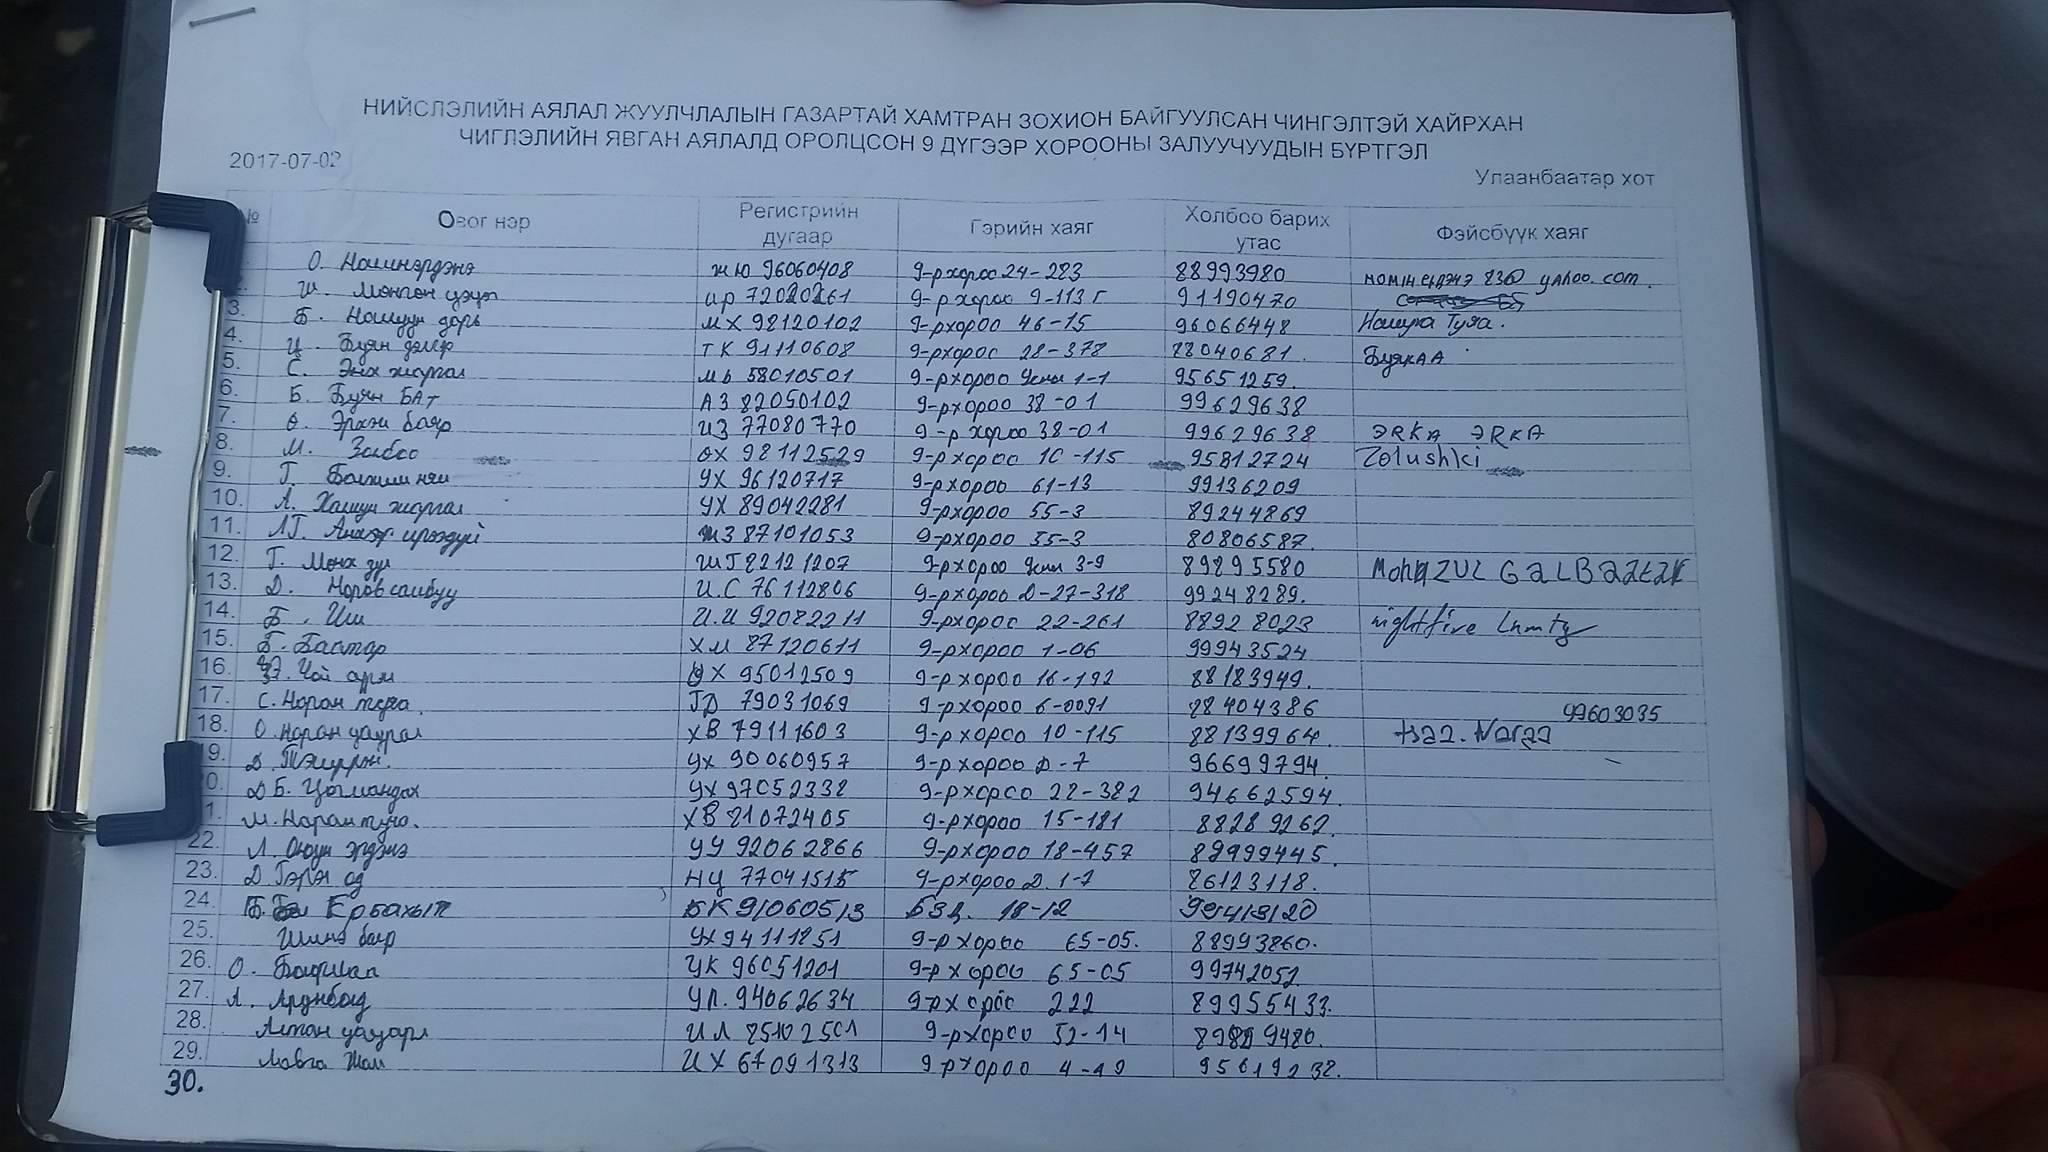 НИЙСЛЭЛИЙН АЯЛАЛ ЖУУЛЧЛАЛЫН ГАЗАРТАЙ ХАМТРАН ЗОХИОН БАЙГУУЛСАН ЧИНГЭЛТЭЙ ХАЙРХАН
ЧИГЛЭЛИЙН ЯВГАН АЯЛАЛД ОРОЛЦСОН 9 ДҮГЭЭР ХОРООНЫ ЗАЛУУЧУУДЫН БҮРТГЭЛ
2017-07-02
Улаанбаатар хот
№ Овог нэр Регистрийн дугаар Гэрийн хаяг Холбоо барих утас Фэйсбүүк хаяг
О. Номинэрдэнэ жю 96060408 9-р хороо 24-283 88993980 yahoo.com.
Ш. Мөнгөн цэцэг 9-р хороо 9-113г 91190470
3. Б. Номуун дарь мх 98120102 9-р хороо 46-15 96066448 Номура Туяа.
4. Ц. Буян дэлгэр тк 91110608 9-р хороо 28-378 88040681. Буякаа
5. С. Энх жаргал мь 58010501 9-р хороо 1-1 95651259.
6. Б. Буян Бат АЗ 82050102 9-р хороо 38-01 99629638
7. Ө. Эрхэм баяр ИЗ 77080770 9-р хороо 38-01 99629638 ЭRKA ЭRKA
8. М. Золбоо ӨХ 98112529 9-р хороо 10-115 95812724 Zolushki
9. Г. УХ 96120717 9-р хороо 61-13 99136209
10. Л. УХ 89042281 9-р хороо 55-3 89244869
11. ЖЗ 87101053 9-р хороо 55-3 80806587.
12. Г. Мөнх зул ШГ 82121207 9-р хороо 3-9 89895580 MOHQZUL GALBAATAR
13. Д. Норовсамбуу И.С 76112806 9-р хороо Д-27-318 99248289.
14. Б. И.И 92082211 9-р хороо 22-261 88928023 nightfire
15. Б. Баатар ХМ 87120611 9-р хороо 1-06 99943524
16. УХ 95012509 9-р хороо 16-192 88183949.
17. С. Наран туяа. ГД 79031069 9-р хороо 6-0091 88404386 99603035
18. О. Наран цацрал ХВ 79111603 9-р хороо 10-115 88139964. tsaa.Naraa
19. Д. Тэмүүжин. УХ 90060957 9-р хороо Д-7 96699794.
20. Д Б. Цогмандах УХ 97052338 9-р хороо 28-382 94662594.
21. М. Нарантуяа. ХВ 81072405 9-р хороо 15-181 88289262.
22. Л. Оюун эрдэнэ УУ 92062866 9-р хороо 18-457 89999445.
23. Д Гэрэл од НЦ 77041515 9-р хороо Д. 1-7 86123118.
24. Б. Ербахыт БК 91060513 БЗД. 18-12 99419120
25. Шинэ баяр УХ 94111851 9-р хороо 65-05. 88993860.
26. О. УК 96051201 9-р хороо 65-05 99742052
27. Л. УП. 94062634 9-р хороо 222 89955433.
28. Алтан цацарал ИЛ 85102501 9-р хороо 52-14
29. Лавга Жам ИХ 67091313 9-р хороо 4-19 95619232.
30.